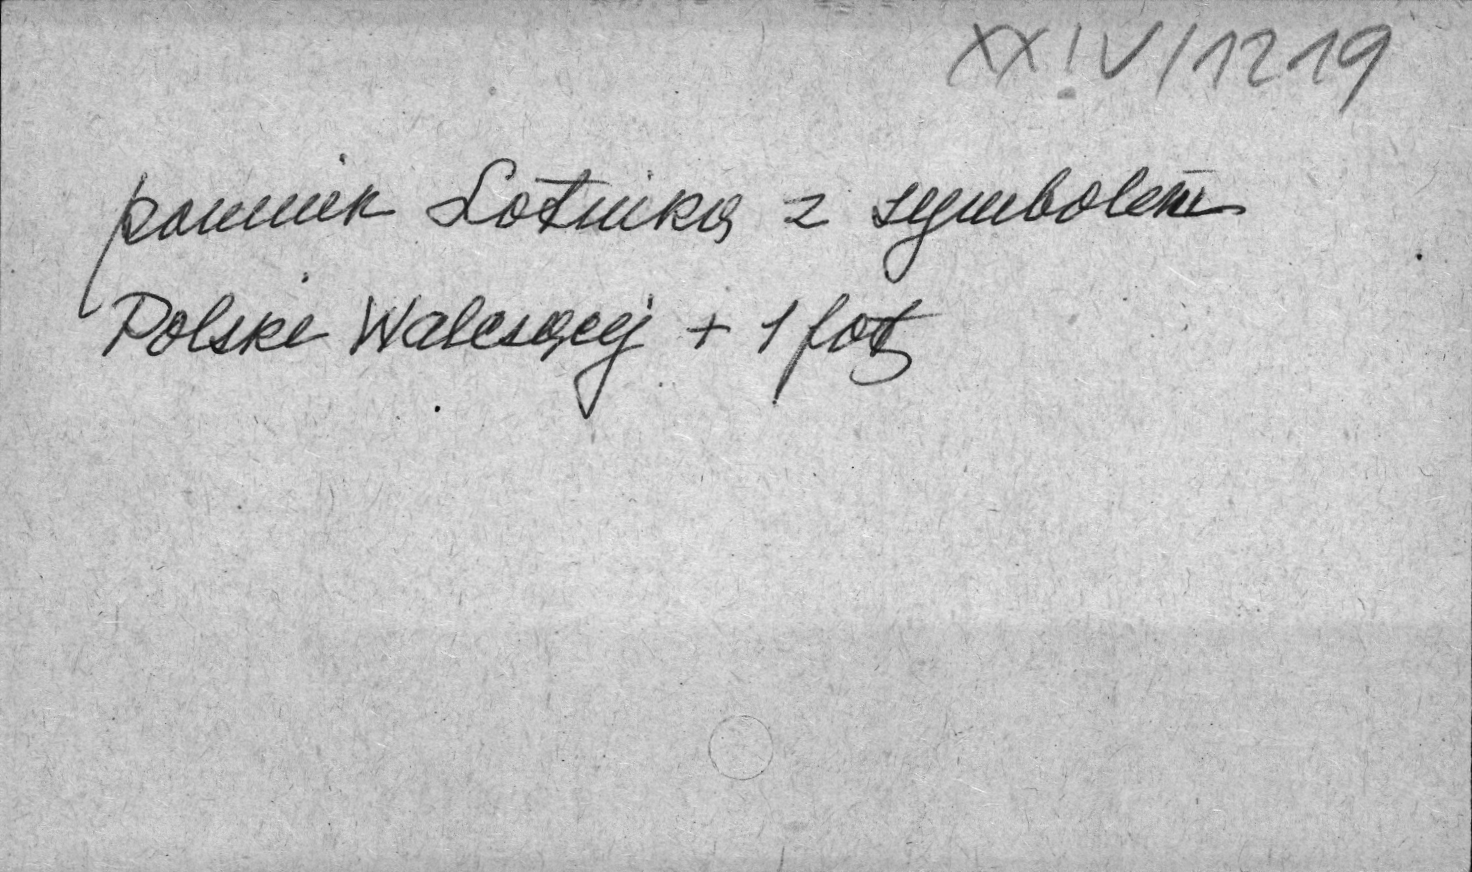 XXIV/1219
pomnik Lotnika z symbolem
Polski Walczącej + 1 fot